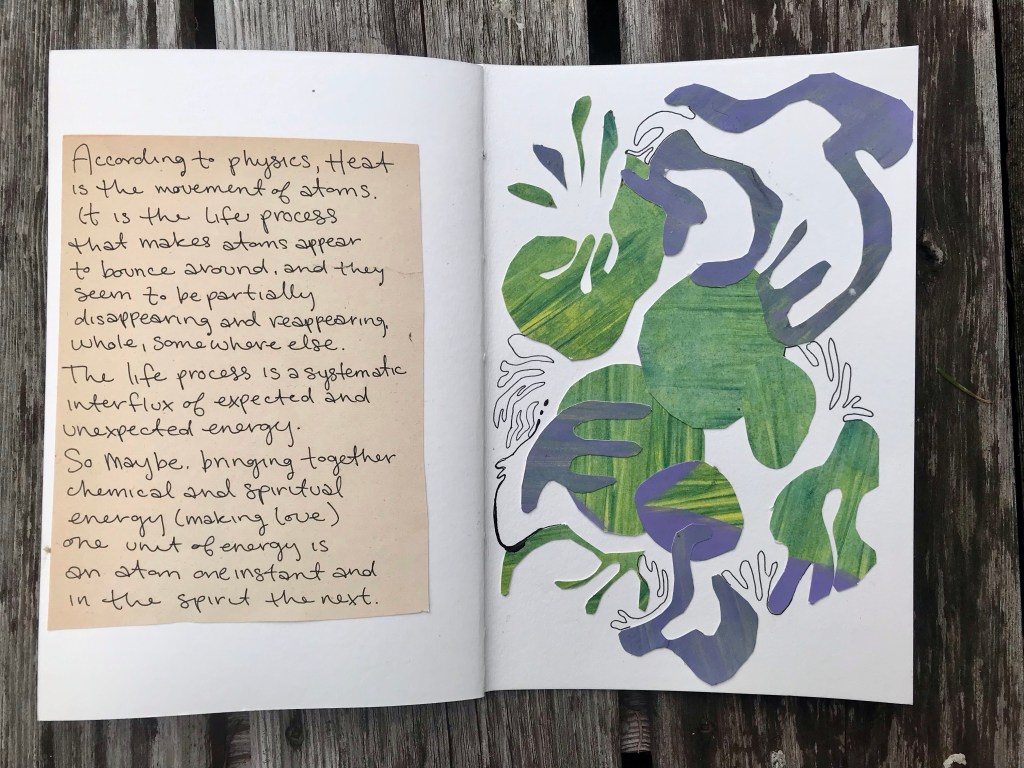 According to physics, Heat
is the movement of atoms.
It is the life process
that makes atoms appear
to bounce around, and they
seem to be partially
disappearing and reappearing,
whole, somewhere else.
The life process is a systematic
interflux of expected and
unexpected energy.
So Maybe, bringing together
chemical and spiritual
energy (making love)
one unit of energy is
an atom one instant and
in the spirit the next.